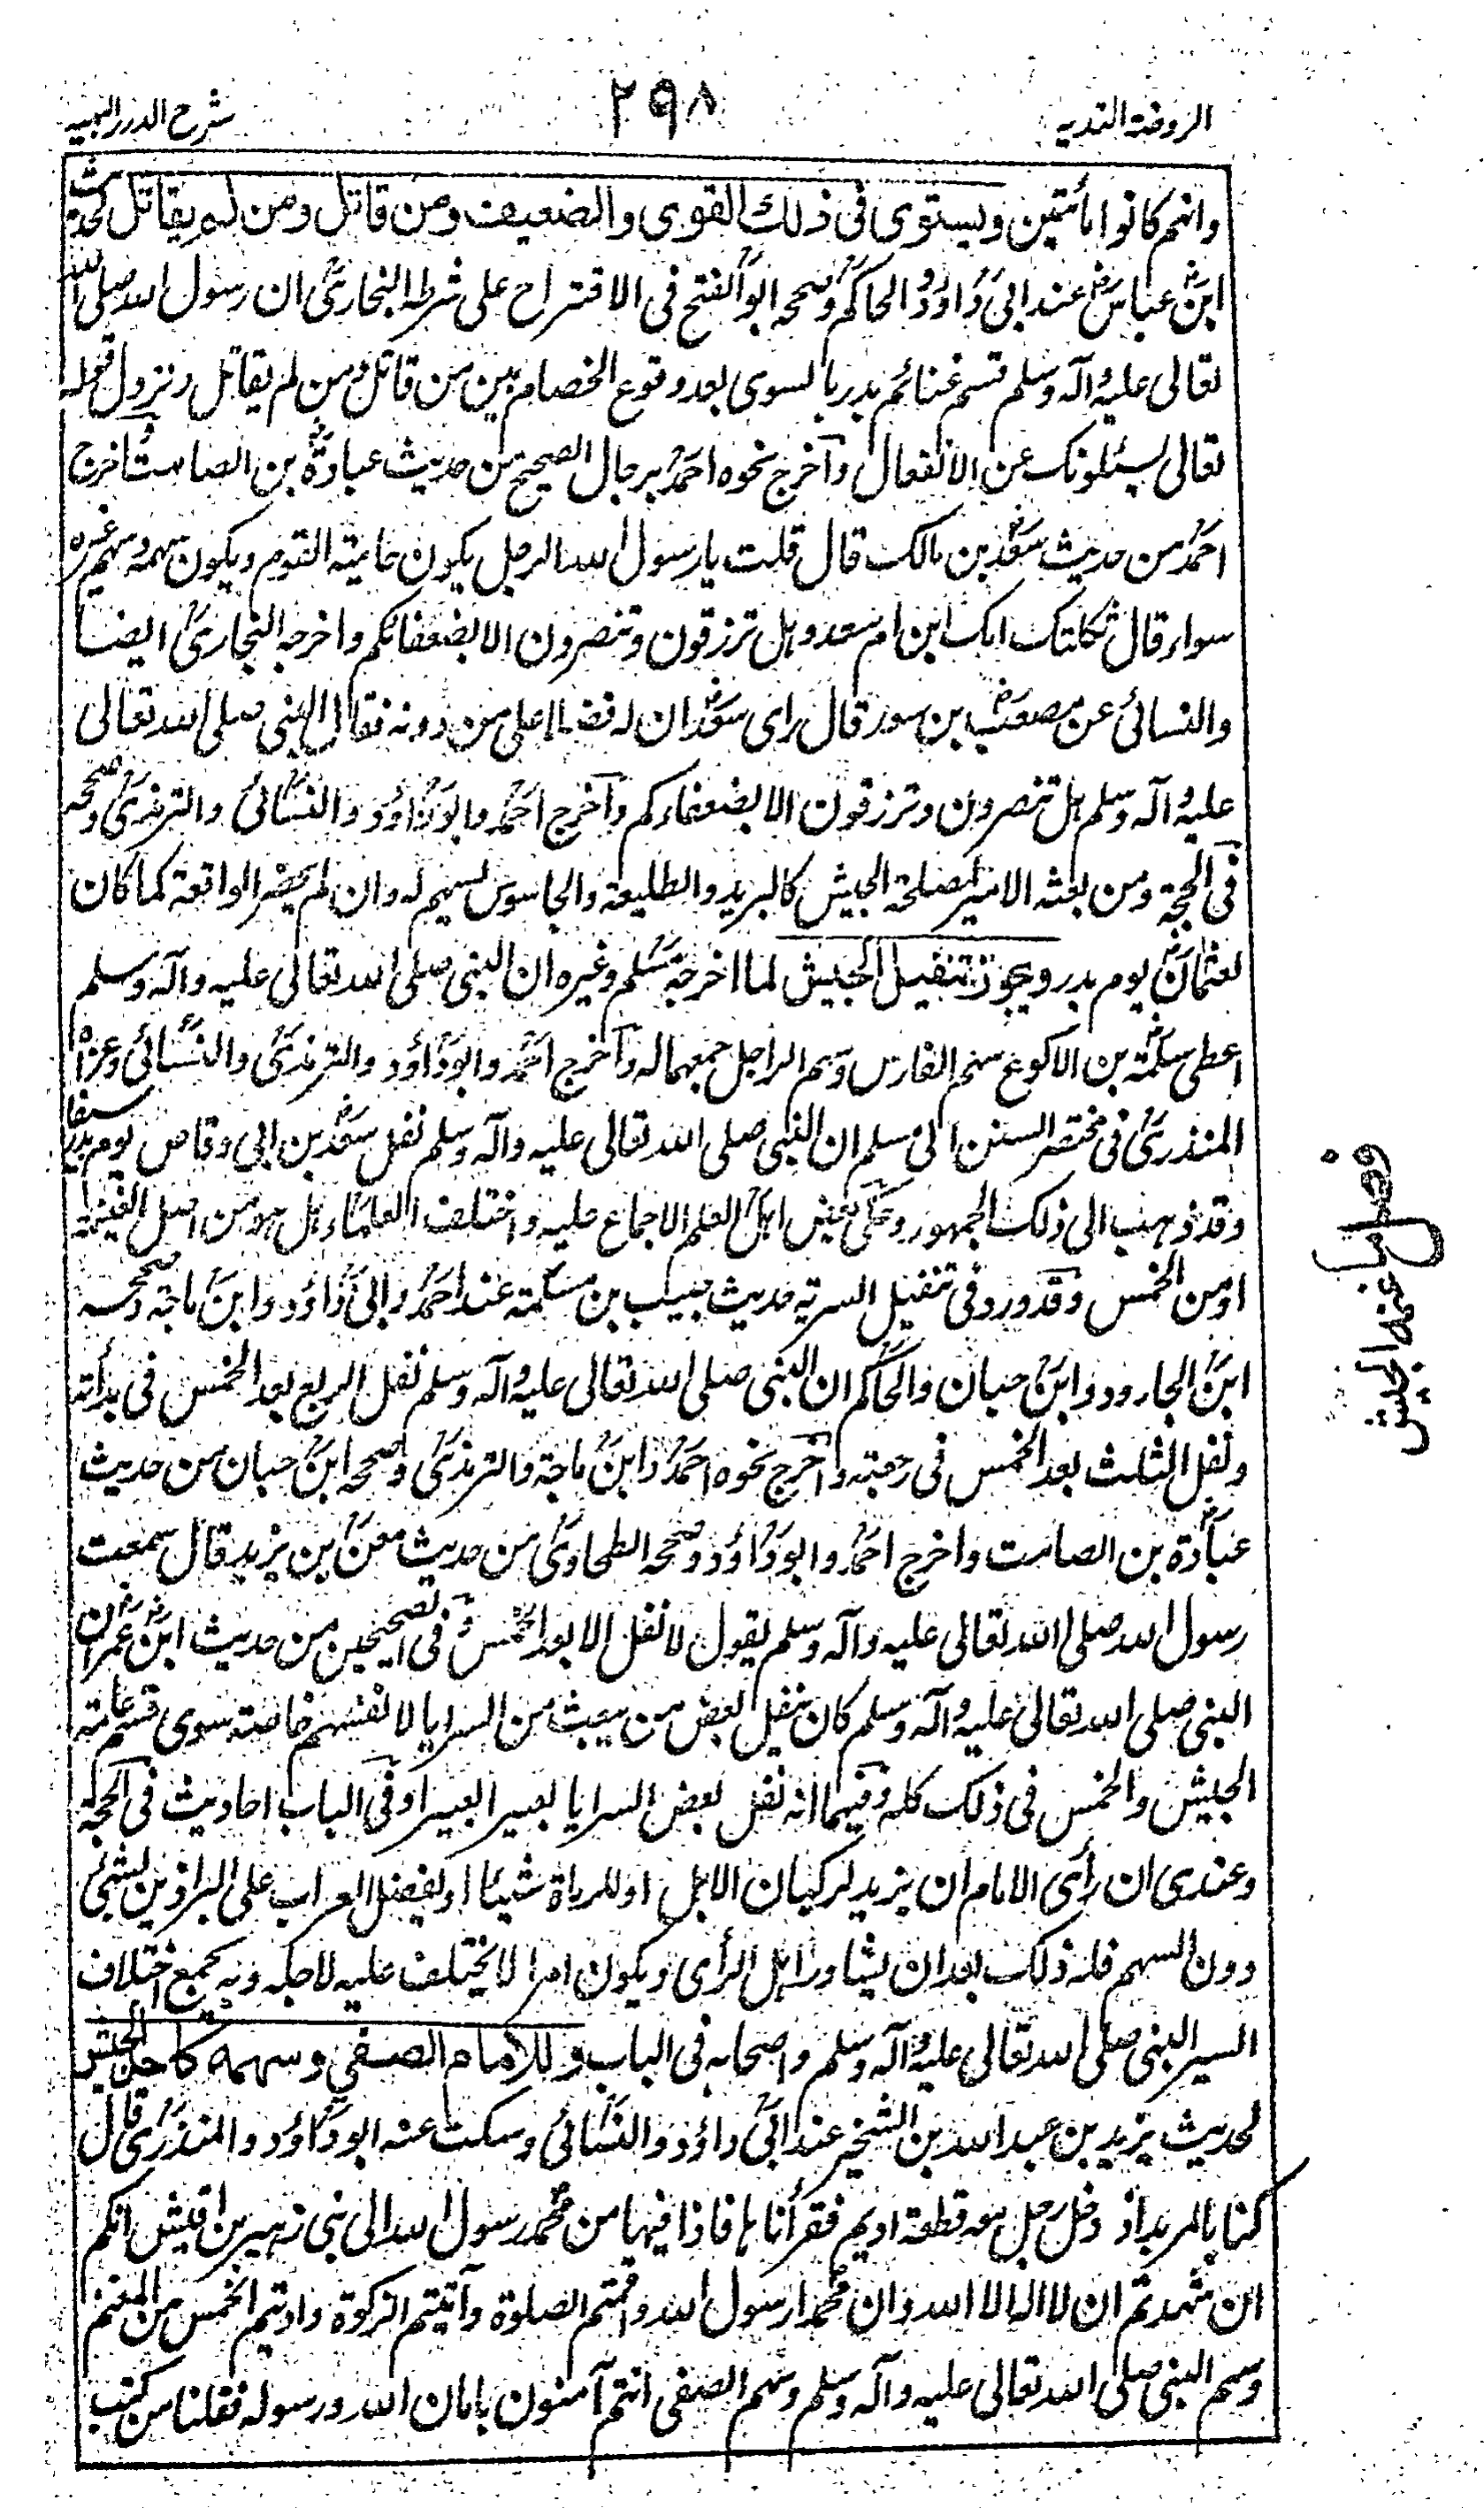 الروضة الندية
٢٩٨
شرح الدرر البهية
وانهم كانوا مأتين ويستوى فى ذلك القوى والضعيف ومن قاتل ومن لم يقاتل لحديث
ابن عباس عند ابى داؤد والحاكم وصححه ابو الفتح فى الاقتراح على شرط البخارى ان رسول الله صلى الله
تعالى عليه وآله وسلم قسم غنائم بدر بالسوى بعد وقوع الخصام بين من قاتل ومن لم يقاتل ونزول قوله
تعالى يسئلونك عن الانفال وآخرج نحوه احمد برجال الصحيح من حديث عبادة بن الصامت واخرج
احمد من حديث سعد بن مالك قال قلت يا رسول الله الرجل يكون حامية القوم ويكون سهمه وسهم غيره
سواء قال ثكلتك امك ابن ام سعد وهل ترزقون وتنصرون الا بضعفائكم واخرجه البخارى ايضا
والنسائى عن مصعب بن سعد قال راى سعد ان له فضلا على من دونه فقال النبى صلى الله تعالى
عليه وآله وسلم هل تنصرون وترزقون الا بضعفاءكم وآخرج احمد وابو داؤد والنسائى والترمذى وصححه
فى الحجة ومن بعثه الامير لمصلحة الجيش كالبريد والطليعة والجاسوس يسهم له وان لم يحضر الواقعة كما كان
لعثمان يوم بدر ويجوز تنفيل الجيش لما اخرجه مسلم وغيره ان النبى صلى الله تعالى عليه وآله وسلم
اعطى سلمة بن الاكوع سهم الفارس وسهم الراجل جمعهما له وآخرج احمد وابو داؤد والترمذى والنسائى وعزاه
المنذرى فى مختصر السنن الى مسلم ان النبى صلى الله تعالى عليه وآله وسلم نفل سعد بن ابى وقاص يوم بدر سيفا
وقد ذهب الى ذلك الجمهور وحكى بعض اهل العلم الاجماع عليه واختلف العلماء هل هو من اصل الغنيمة
او من الخمس وقد ورد فى تنفيل السرية حديث حبيب بن مسلمة عند احمد وابى داؤد وابن ماجة وصححه
ابن الجارود وابن حبان والحاكم ان النبى صلى الله تعالى عليه وآله وسلم نفل الربع بعد الخمس فى بدأته
ونفل الثلث بعد الخمس فى رجعته وآخرج نحوه احمد وابن ماجة والترمذى وصححه ابن حبان من حديث
عبادة بن الصامت واخرج احمد وابو داؤد وصححه الطحاوى من حديث معن بن يزيد قال سمعت
رسول الله صلى الله تعالى عليه وآله وسلم يقول لا نفل الا بعد الخمس وفى الصحيحين من حديث ابن عمر ان
النبى صلى الله تعالى عليه وآله وسلم كان ينفل بعض من يبعث من السرايا لانفسهم خاصة سوى قسم عامة
الجيش والخمس فى ذلك كله وفيهما انه نفل بعض السرايا بعيرا بعيرا وفى الباب احاديث فى الحجة
وعندى ان رأى الامام ان يزيد لركبان الابل او للرماة شيئا او يفضل العراب على البراذين بشئ
دون السهم فله ذلك بعد ان يشاور اهل الرأى ويكون امرا لا يختلف عليه لاجله وبه يجمع اختلاف
السير النبى صلى الله تعالى عليه وآله وسلم واصحابه فى الباب وللامام الصفي وسهمه كاحد الجيش
لحديث يزيد بن عبد الله بن الشخير عند ابى داؤد والنسائى وسكت عنه ابو داؤد والمنذرى قال
كنا بالمربد اذ دخل رجل معه قطعة اديم فقرأناها فاذا فيها من محمد رسول الله الى بنى زهير بن اقيش انكم
ان شهدتم ان لا اله الا الله وان محمدا رسول الله واقمتم الصلوة وآتيتم الزكوة واديتم الخمس من المغنم
وسهم النبى صلى الله تعالى عليه وآله وسلم وسهم الصفى انتم آمنون بامان الله ورسوله فقلنا من كتب